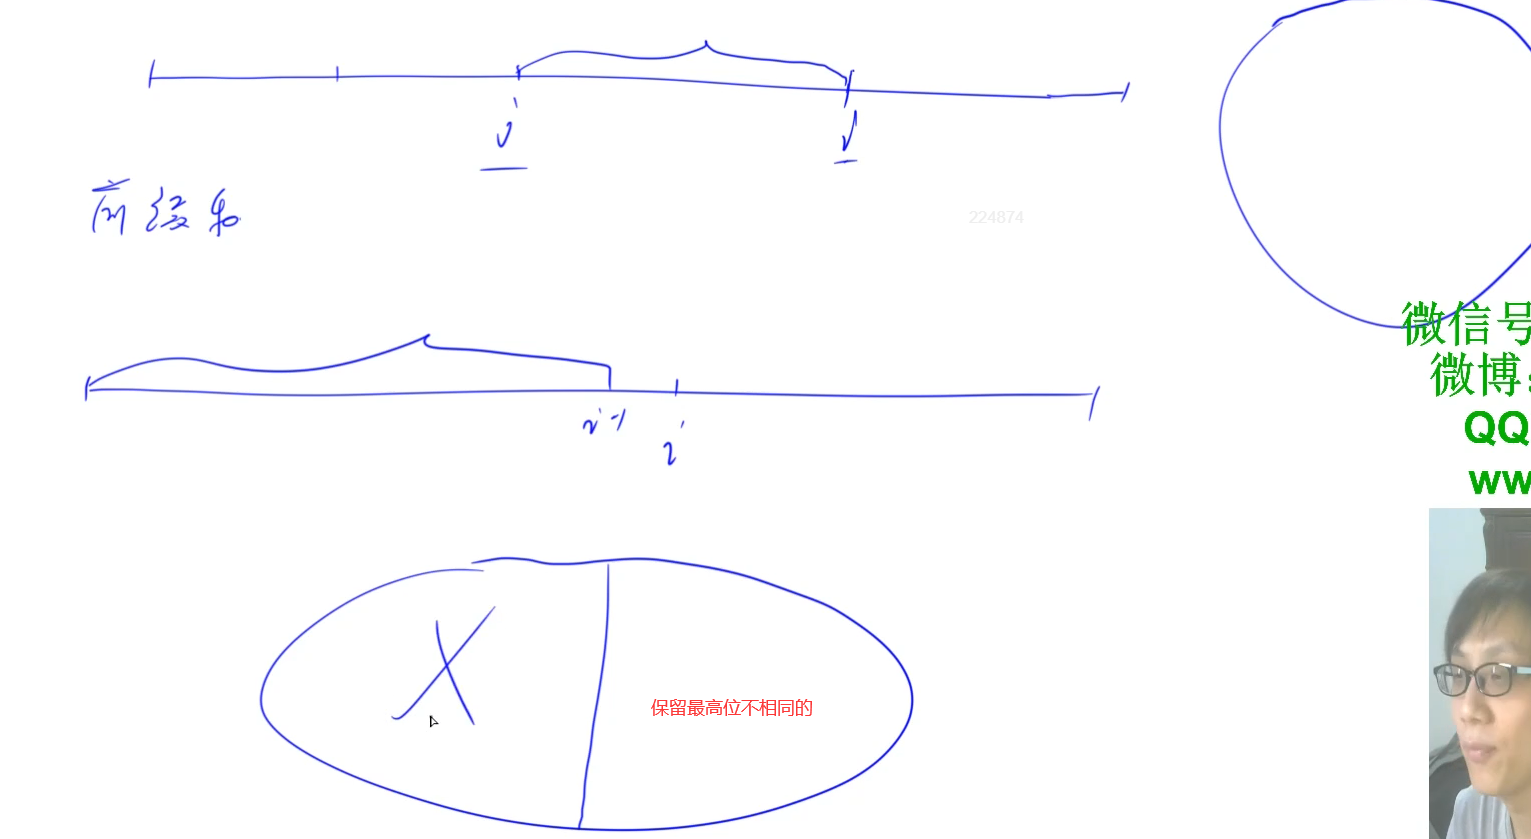 j
i
前缀和
224874
i-1
i
X
保留最高位不相同的
微信号
微博:
QQ
ww